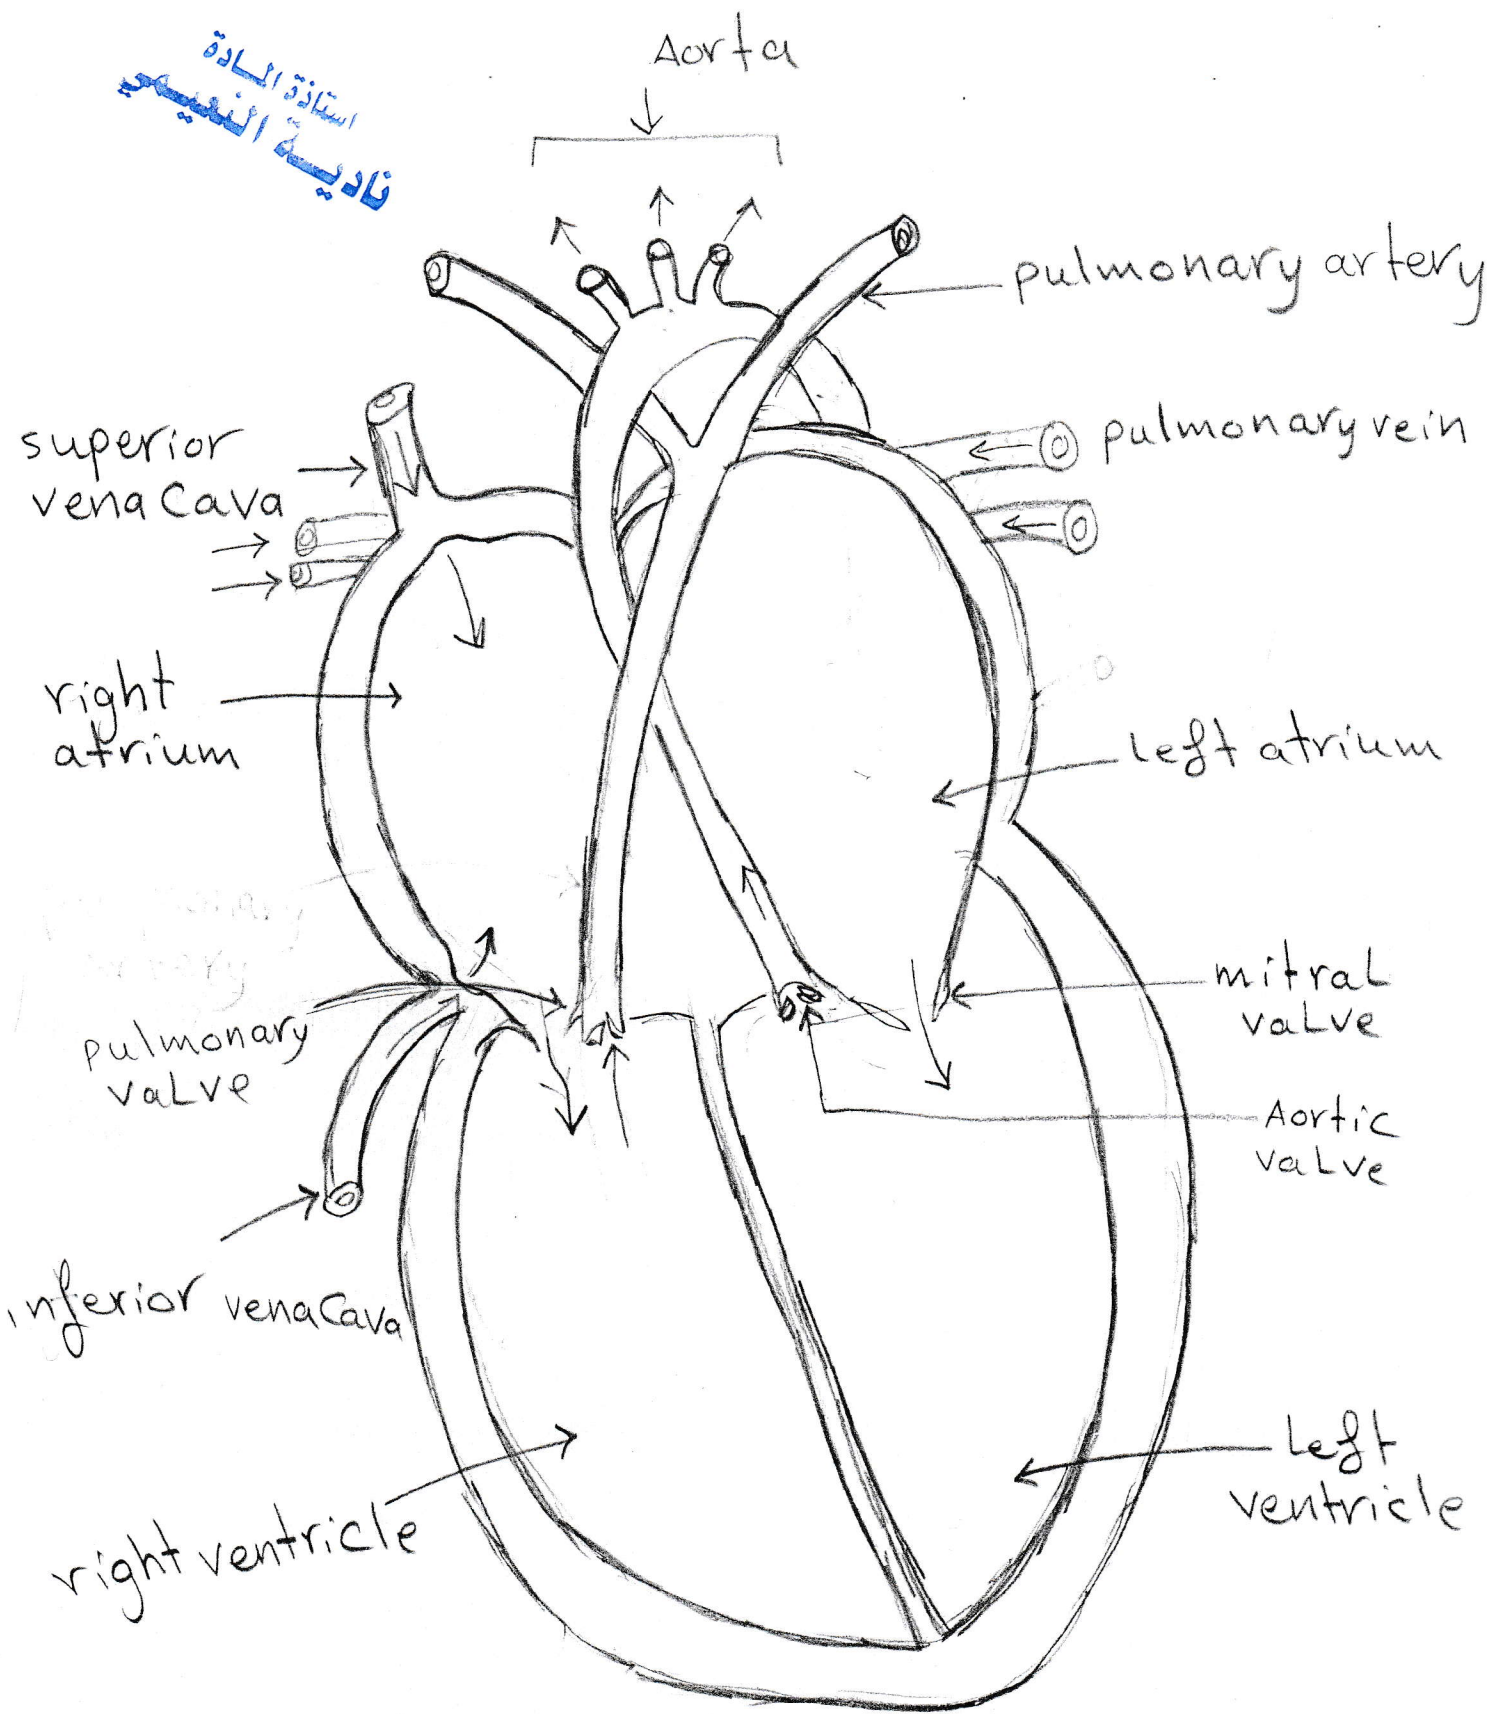 Aorta
استاذة المادة
ناديـة النعيمي
pulmonary artery
superior
vena cava
pulmonary vein
right
atrium
left atrium
mitral
valve
pulmonary
valve
Aortic
valve
inferior vena cava
left
ventricle
right ventricle